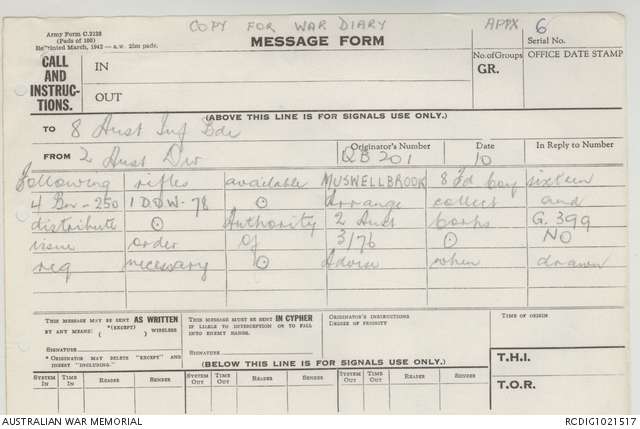 COPY FOR WAR DIARY APPX 6
Army Form C.2128
(Pads of 100)
Reprinted March, 1942 — a.w. 25m pads.
MESSAGE FORM
Serial No.
CALL AND INSTRUCTIONS.
IN
OUT
No. of Groups
GR.
OFFICE DATE STAMP
(ABOVE THIS LINE IS FOR SIGNALS USE ONLY.)
TO 8 Aust Inf Bde
FROM 2 Aust Div
Originator's Number
QB201
Date
10
In Reply to Number
following rifles available MUSWELLBROOK 8 Fd coy sixteen
4 Bn - 250 1 DOW - 78 ⊙ Arrange collect and
distribute ⊙ Authority 2 Aust corps G.399
issue order of 3/76 ⊙ NO
req necessary ⊙ Advise when drawn
THIS MESSAGE MAY BE SENT AS WRITTEN
BY ANY MEANS: ( *(EXCEPT) ) WIRELESS
SIGNATURE
* ORIGINATOR MAY DELETE "EXCEPT" AND INSERT "INCLUDING."
THIS MESSAGE MUST BE SENT IN CYPHER
IF LIKELY TO INTERCEPTION OR TO FALL INTO ENEMY HANDS.
SIGNATURE
ORIGINATOR'S INSTRUCTIONS
DEGREE OF PRIORITY
TIME OF ORIGIN
(BELOW THIS LINE IS FOR SIGNALS USE ONLY.)
T.H.I.
T.O.R.
SYSTEM IN TIME IN READER SENDER SYSTEM OUT TIME OUT READER SENDER SYSTEM OUT TIME OUT READER SENDER
AUSTRALIAN WAR MEMORIAL
RCDIG1021517